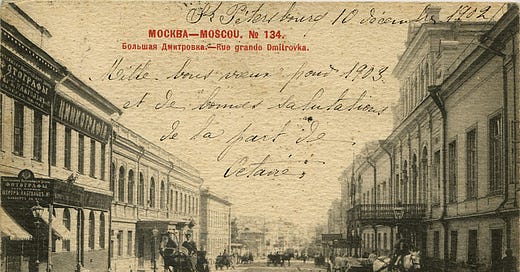 St Pétersbourg 10 décembre 1902
МОСКВА—MOSCOU. № 134.
Большая Дмитровка.—Rue grande Dmitrovka.
Mille bons vœux pour 1903
et de bonnes salutations
de la part de
ФОТОГРАФЫ